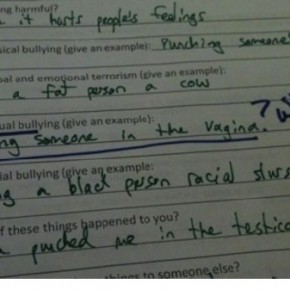 ng harmful?
it hurts people's feelings
sical bullying (give an example): Punching someone
bal and emotional terrorism (give an example):
a fat person a cow
ual bullying (give an example):
ng someone in the vagina. ?
ial bullying (give an example:
g a black person racial slurs
f these things happened to you?
me in the testic
things to someone else?